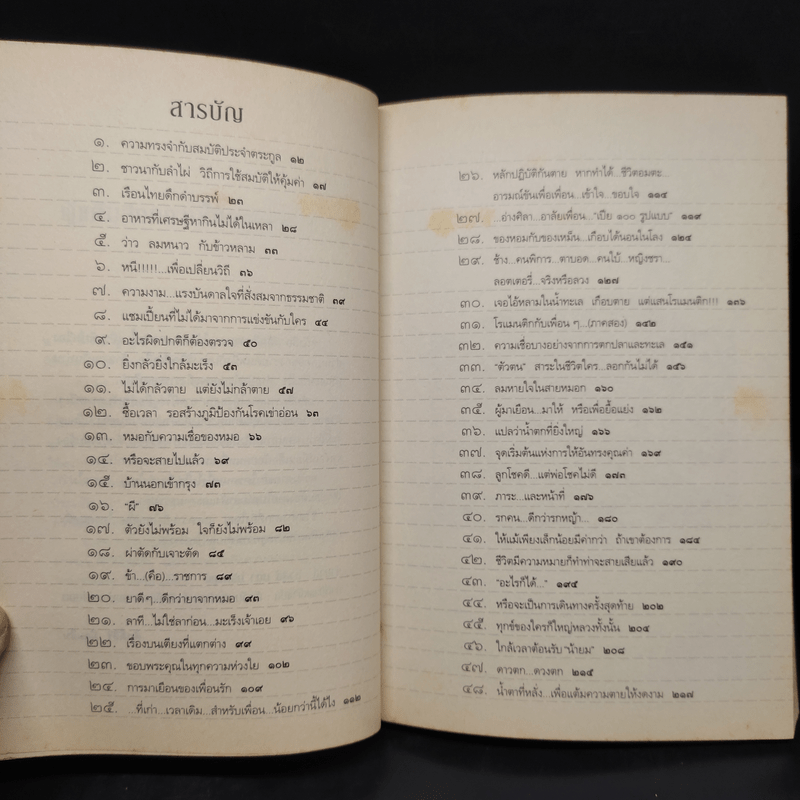 สารบัญ
๑. ความทรงจำกับสมบัติประจำตระกูล ๑๒
๒. ชาวนากับลำไผ่ วิถีการใช้สมบัติให้คุ้มค่า ๑๗
๓. เรือนไทยดึกดำบรรพ์ ๒๓
๔. อาหารที่เศรษฐีหากินไม่ได้ในเหลา ๒๘
๕. ว่าว ลมหนาว กับข้าวหลาม ๓๓
๖. หนี!!!!!...เพื่อเปลี่ยนวิถี ๓๖
๗. ความงาม...แรงบันดาลใจที่สั่งสมจากธรรมชาติ ๓๙
๘. แชมเปี้ยนที่ไม่ได้มาจากการแข่งขันกับใคร ๔๔
๙. อะไรผิดปกติก็ต้องตรวจ ๕๐
๑๐. ยิ่งกลัวยิ่งใกล้มะเร็ง ๕๓
๑๑. ไม่ได้กลัวตาย แต่ยังไม่กล้าตาย ๕๗
๑๒. ซื้อเวลา รอสร้างภูมิป้องกันโรคเข่าอ่อน ๖๓
๑๓. หมอกับความเชื่อของหมอ ๖๖
๑๔. หรือจะสายไปแล้ว ๖๙
๑๕. บ้านนอกเข้ากรุง ๗๓
๑๖. "ผี" ๗๖
๑๗. ตัวยังไม่พร้อม ใจก็ยังไม่พร้อม ๘๒
๑๘. ผ่าตัดกับเจาะตัด ๘๕
๑๙. ข้า...(คือ)...ราชการ ๘๙
๒๐. ยาดีๆ...ดีกว่ายาจากหมอ ๙๓
๒๑. ลาที...ไม่ใช่ลาก่อน...มะเร็งเจ้าเอย ๙๖
๒๒. เรื่องบนเตียงที่แตกต่าง ๙๙
๒๓. ขอบพระคุณในทุกความห่วงใย ๑๐๒
๒๔. การมาเยือนของเพื่อนรัก ๑๐๙
๒๕. ...ที่เก่า...เวลาเดิม...สำหรับเพื่อน...น้อยกว่านี้ได้ไง ๑๑๒
๒๖. หลักปฏิบัติกันตาย หากทำได้...ชีวิตอมตะ...
อารมณ์ขันเพื่อเพื่อน...เข้าใจ...ขอบใจ ๑๑๔
๒๗. ...อ่างศิลา...อาลัยเพื่อน..."เปีย ๑๐๐ รูปแบบ" ๑๑๙
๒๘. ของหอมกับของเหม็น...เกือบได้นอนในโลง ๑๒๔
๒๙. ช้าง...คนพิการ...ตาบอด...คนใบ้...หญิงชรา...
ลอตเตอรี่...จริงหรือลวง ๑๒๗
๓๐. เจอไอ้หลามในน้ำทะเล เกือบตาย แต่แสนโรแมนติก!!! ๑๓๖
๓๑. โรแมนติกกับเพื่อน ๆ...(ภาคสอง) ๑๔๒
๓๒. ความเชื่อบางอย่างจากการตกปลาและทะเล ๑๕๑
๓๓. "ตัวตน" สาระในชีวิตใคร...ลอกกันไม่ได้ ๑๕๖
๓๔. ลมหายใจในสายหมอก ๑๖๐
๓๕. ผู้มาเยือน...มาให้ หรือเพื่อยื้อแย่ง ๑๖๒
๓๖. แปลว่าน้ำตกที่ยิ่งใหญ่ ๑๖๖
๓๗. จุดเริ่มต้นแห่งการให้อันทรงคุณค่า ๑๖๙
๓๘. ลูกโชคดี...แต่พ่อโชคไม่ดี ๑๗๓
๓๙. ภาระ...และหน้าที่ ๑๗๖
๔๐. รกคน...ดีกว่ารกหญ้า... ๑๘๐
๔๑. ให้แม้เพียงเล็กน้อยมีค่ากว่า ถ้าเขาต้องการ ๑๘๔
๔๒. ชีวิตมีความหมายก็ทำท่าจะสายเสียแล้ว ๑๙๐
๔๓. "อะไรก็ได้..." ๑๙๕
๔๔. หรือจะเป็นการเดินทางครั้งสุดท้าย ๒๐๒
๔๕. ทุกข์ของใครก็ใหญ่หลวงทั้งนั้น ๒๐๕
๔๖. ใกล้เวลาต้อนรับ "น้ายม" ๒๐๘
๔๗. ดาวตก...ดวงตก ๒๑๕
๔๘. น้ำตาที่หลั่ง...เพื่อแต้มความตายให้งดงาม ๒๑๗